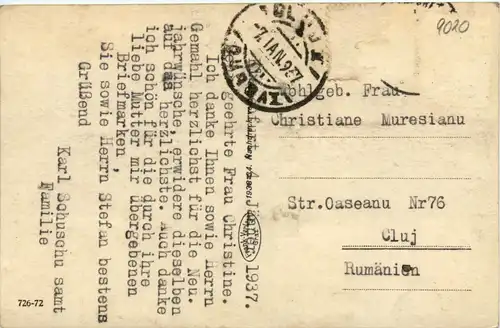 furt 4. Jänner 1937.
geehrte Frau Christine.
Ich danke Ihnen sowie Herrn
Gemahl herzlichst für die Neu.
jahrwünsche, erwidere dieselben
auf das herzlichste. Auch danke
ich schön für die durch ihre
liebe Mutter mir übergebenen
Briefmarken,
Sie sowie Herrn Stefan bestens
Grüßend
Karl Schuschu samt
Familie
726-72
CLUJ
7. IAN. 937
9020
Wohlgeb. Frau
Christiane Muresianu
Str. Oaseanu Nr 76
Cluj
Rumänien